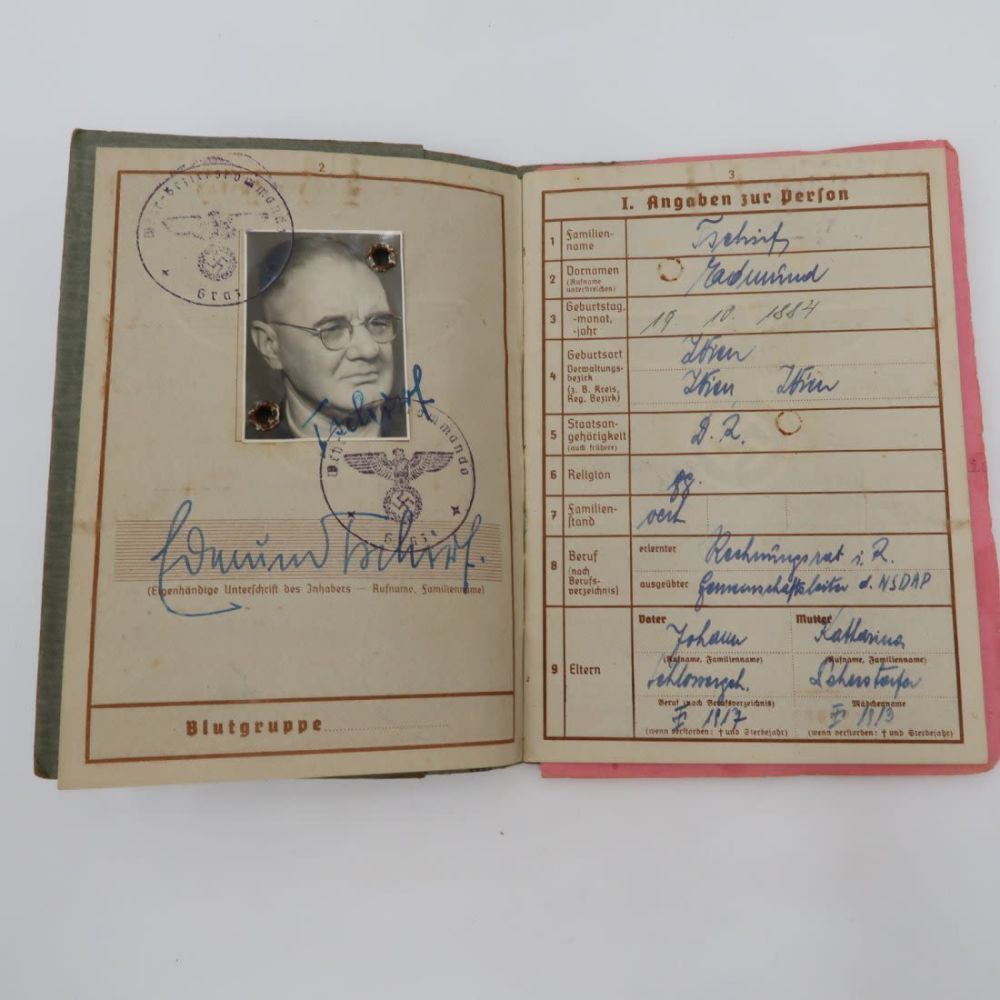 2
Wehr-Bezirkskommando
Graz
Wehr-Bezirkskommando
Graz
Edmund
(Eigenhändige Unterschrift des Inhabers — Rufname, Familienname)
Blutgruppe
3
I. Angaben zur Person
1 Familien-
name
2 Vornamen Edmund
(Rufname
unterstreichen)
3 Geburtstag,
-monat,
-jahr
19. 10. 1884
4 Geburtsort Wien
Verwaltungs-
bezirk
(z. B. Kreis,
Reg. Bezirk)
Wien Wien
5 Staatsan-
gehörigkeit
(auch frühere)
D. R.
6 Religion
7 Familien-
stand
8 Beruf
(nach
Berufs-
verzeichnis)
erlernter Rechnungsrat i. R.
ausgeübter Gemeinschaftsleiter d. NSDAP
9 Eltern
Vater Mutter
Johann Katharina
(Rufname, Familienname) (Rufname, Familienname)
Beruf (nach Berufsverzeichnis) Mädchenname
1917 1913
(wenn verstorben: † und Sterbejahr) (wenn verstorben: † und Sterbejahr)